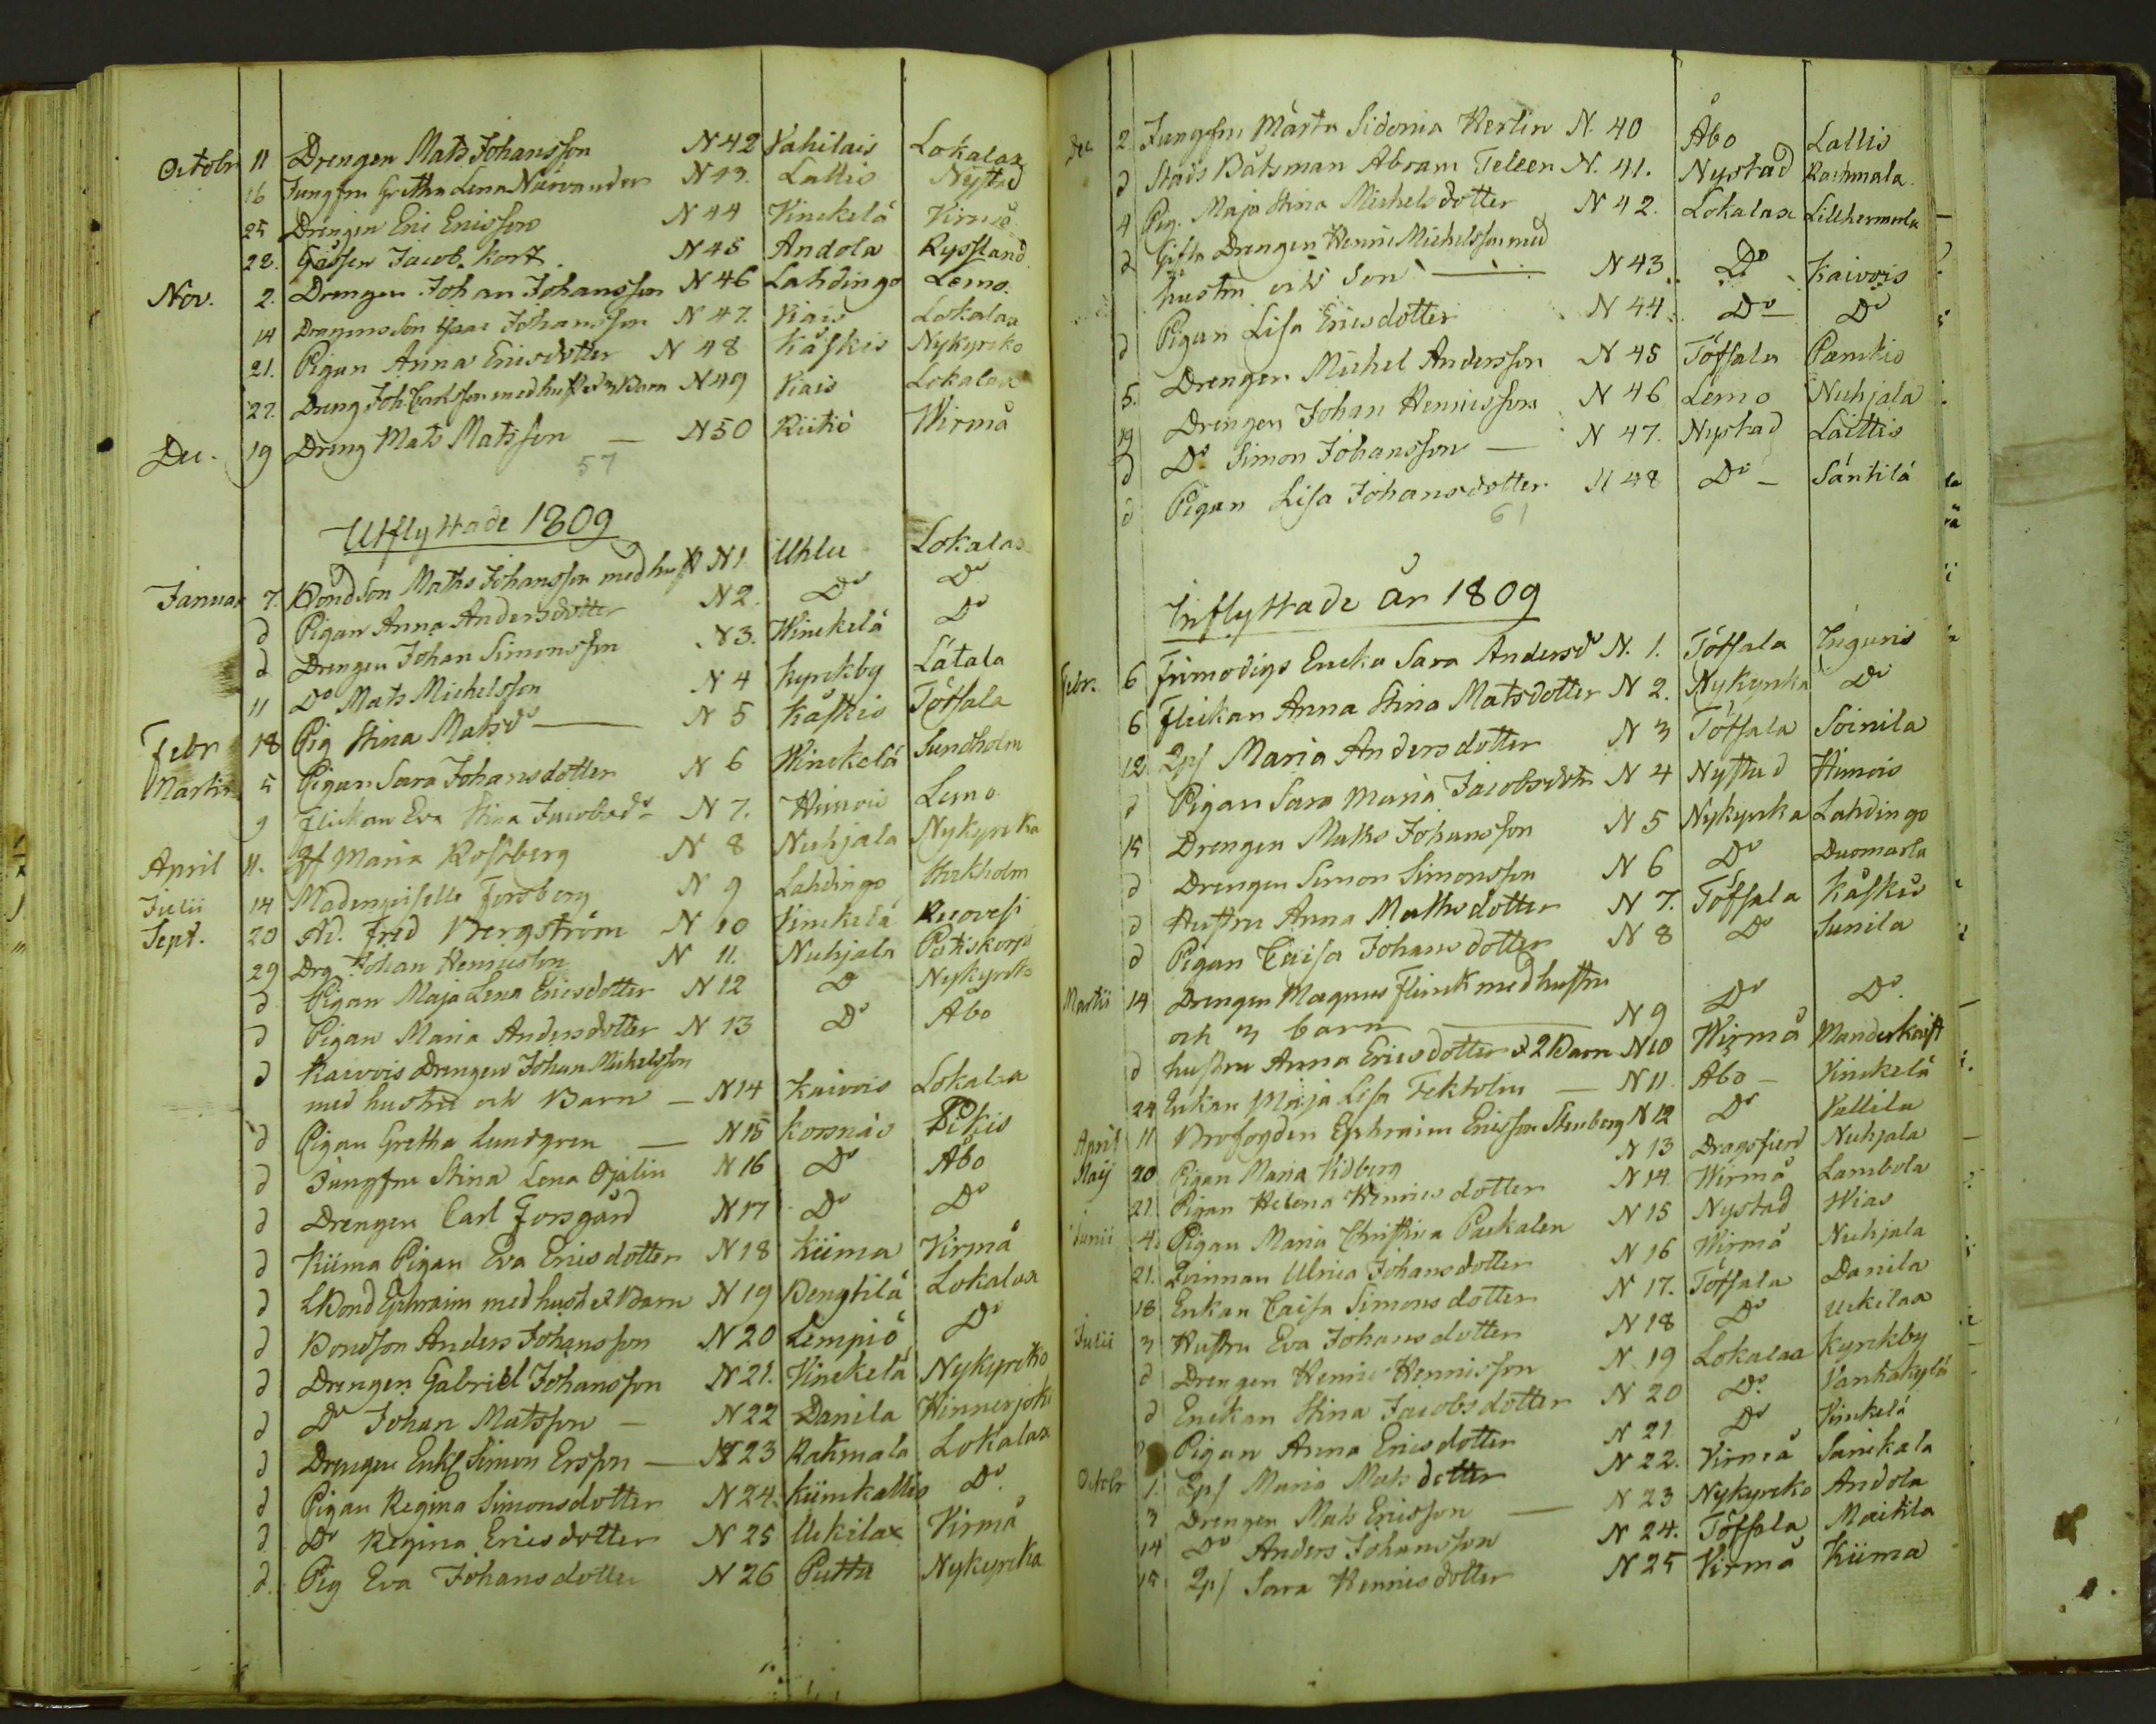 Octobr 11 Drengen Mats Johansson N 42 Vahilais Lokalax
16 Jungfru Gretha Lena Närvander N 43. Lallis Nystad
25 Drengen Eric Ericsson N 44 Kinckelä Virmå
28. Gossen Jacob Kort. N 45 Andola Ryssland
Nov. 2. Drengen Johan Johansson N 46 Lahdingo Lemo.
14 Dragons Son Isaac Johansson N 47. Kais Lokalax
21. Pigan Anna Ericsdotter N 48 Kåskis Nykyrcko
27. Dreng Joh. Carlsson med hust. 3 Barn N 49 Kais Lokalax
Dec. 19 Dreng Mats Matsson — N 50 Riitiö Wirmå
57
Utflyttade 1809
Januar 7. Bondson Maths Johansson med hust N 1 Uhlu Lokalax
d Pigan Anna Andersdotter N 2. Do Do
d Drengen Johan Simonsson N 3. Winckelä Do
11 Do Mats Michelsson N 4 Kyrckby Lätala
Febr 18 Pig Stina Matsdr — N 5 Kåskis Töfsala
Martii 5 Pigan Sara Johansdotter N 6 Winckelä Sundholm
9 Flickan Eva Stina Jacobsdr N 7. Himois Lemo
April 11. Maria Rossberg N 8 Nuhjala Nykyrcka
Julii 14 Mademoiselle Forsberg N 9 Lahdingo Stockholm
Sept. 20 Ad. Fred Bergström N 10 Kinckelä Resovesi
29 Drg Johan Henricsson N 11. Nuhjala
d Pigan Maja Lena Ericsdotter N 12 D Nykyrcko
d Pigan Maria Andersdotter N 13 Do Åbo
d Kaivois Drengen Johan Michelsson
med hustru och Barn — N 14 Kaivois Lokalax
d Pigan Gretha Lundgren — N 15 Korsnäs Pikis
d Jungfru Stina Lena Öjalin N 16 Do Åbo
d Drengen Carl Forsgård N 17 Do Do
d Kiima Pigan Eva Ericsdotter N 18 Kiima Virmå
d LBond Ephraim med hust & Barn N 19 Bengtilä Lokalax
d Bondson Anders Johansson N 20 Lempiö Do
d Drengen Gabriel Johansson N 21. Kinckelä Nykyrcko
d Do Johan Matsson — N 22 Danila Hinnerjoki
d Drengen Enkl Simon Ersson — N 23 Rahmala Lokalax
d Pigan Regina Simonsdotter N 24. Kiimkallio Do.
d. Do Regina Ericsdotter N 25 Uckilax Virmå
d. Pig Eva Johansdotter N 26 Puttu Nykyrcka
Dec 2 Jungfru Märta Sidonia Herlin N. 40 Åbo Lallis
d Stads Båtsman Abram Teleen N. 41. Nystad Rachmala
4 Pig. Maja Stina Michelsdotter N 42. Lokalax Lillhermerla
d Gifta Drengen Henric Michelsson med
hustru och Son — N 43 Do Kaivois
d Pigan Lisa Ericsdotter N 44 Do Do
5. Drengen Michel Andersson N 45 Töffala Pamkio
19 Drengen Johan Henricsson N 46 Lemo Nuhjala
d Do Simon Johansson — N 47. Nystad Laittis
d Pigan Lisa Johansdotter N 48 Do — Säntilä
61
Inflyttade år 1809
Febr. 6 Encka Sara Andersdr N. 1. Töffala
6 Flickan Anna Stina Matsdotter N 2. Nykyrcka Do
12 Maria Andersdotter N 3 Töffala Soinila
d Pigan Sara Maria Jacobsdotr N 4 Nystad Himois
15 Drengen Maths Johansson N 5 Nykyrcka Lahdingo
d Drengen Simon Simonsson N 6 Do Duomarla
d Hustru Anna Mathsdotter N 7. Töffala Kåskis
d Pigan Caisa Johansdotter N 8 Do Sunila
Martii 14 Drengen Magnus Flinck med hustru
och 3 barn — N 9 Do Do
d hustru Anna Ericsdotter & 2 Barn N 10 Wirmå
24 Enkan Maja Lisa Fektolm — N 11. Åbo — Vinckelä
April 11 Brofogden Ephraim Ericsson Stenberg N 12 Do Vallila
Maij 20 Pigan Maria Vidberg N 13 Dragsfierd Nuhjala
21. Pigan Helena Henricsdotter N 14. Wirmå Lambola
Junii 4. Pigan Maria Christina Packalen N 15 Nystad Wias
21. Qvinnan Ulrica Johansdotter N 16 Wirmå Nuhjala
18 Enkan Caisa Simonsdotter N 17. Töffala Danila
Julii 3 Hustru Eva Johansdotter N 18 Do Uckilax
d Drengen Henric Henricsson N 19 Lokalax Kyrckby
d Enckan Stina Jacobsdotter N 20 Do. Vankakylä
Pigan Anna Ericsdotter N 21 Do Vinckelä
Octobr 1. Maria Matsdotter N 22. Virmå Sarickala
3 Drengen Mats Ericsson — N 23 Nykyrcko Andola
14 Do Anders Johansson N 24. Töffala Maitila
15 Sara Henricsdotter N 25 Virmå Kiima